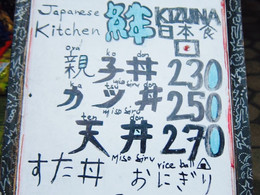 Japanese Kitchen 絆 KIZUNA 日本食
oya ko don
親子丼 230
miso siru
ka tsu don
カツ丼 250
miso siru
ten don
天丼 270
miso siru rice ball
すた丼 おにぎり